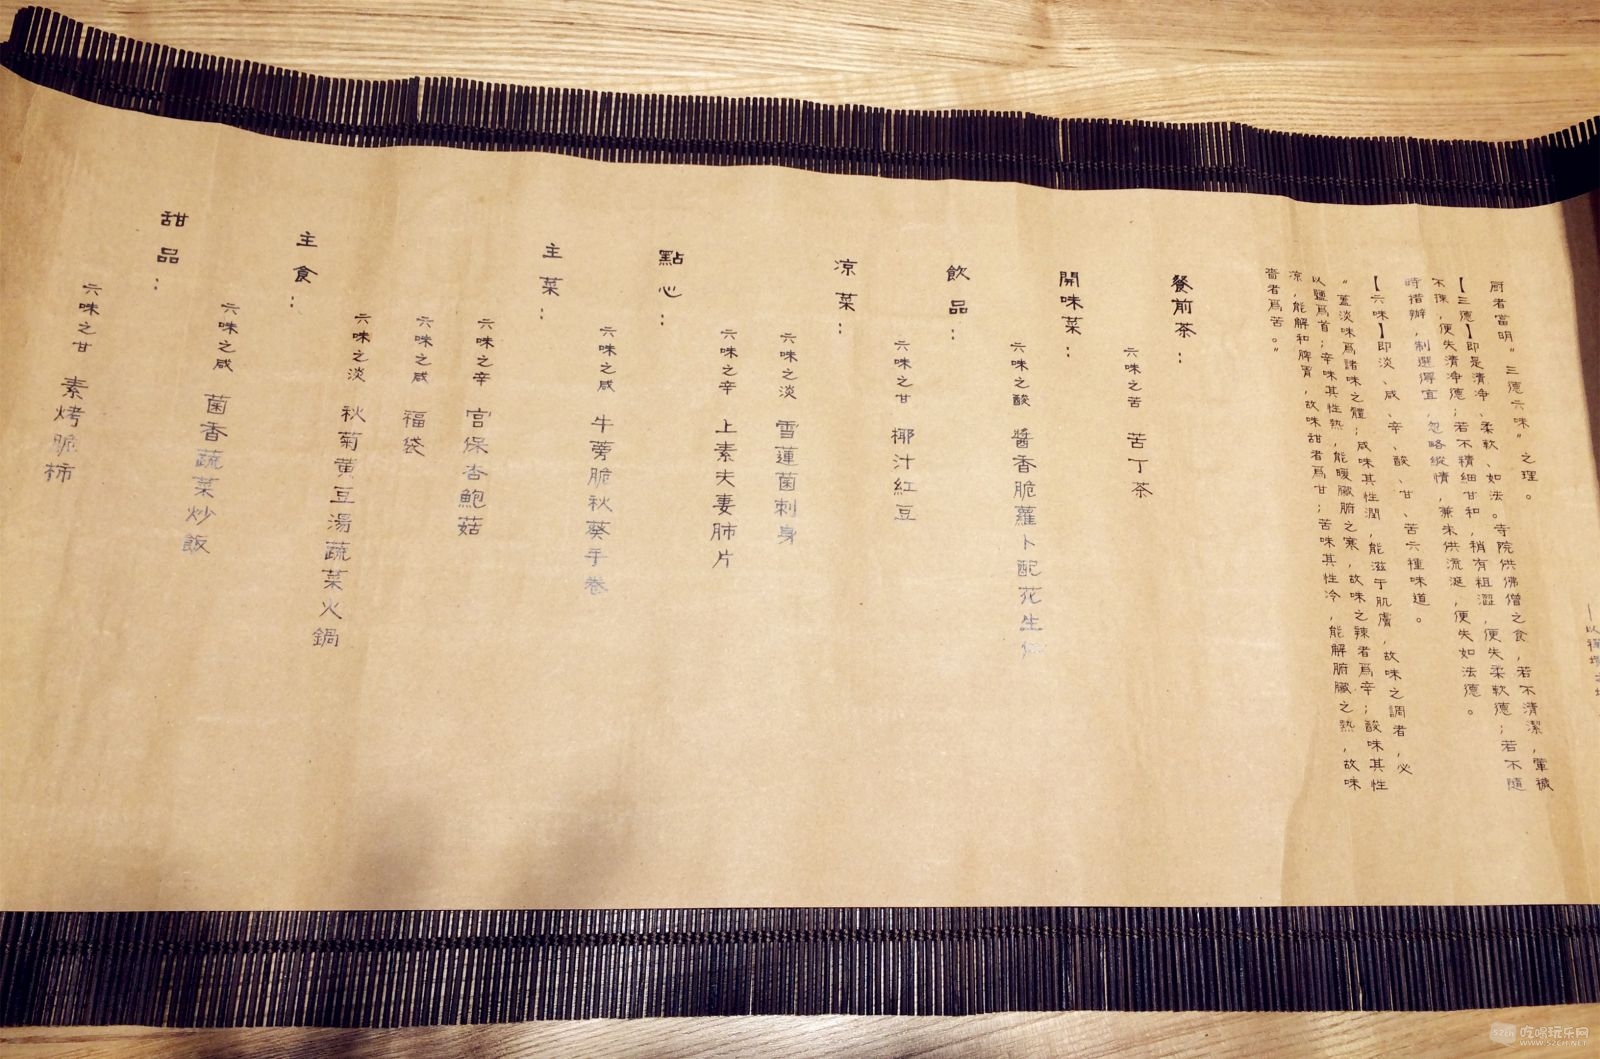 廚者當明“三德六味”之理。
【三德】即是清净、柔軟、如法。寺院供佛僧之食,若不清潔,葷穢
不揀,便失清净德;若不精細甘和,稍有粗澀,便失柔軟德;若不隨
時措辦,制造得宜,忽略縱情,兼未供流涎,便失如法德。
【六味】即淡、咸、辛、酸、甘、苦六種味道。
“蓋淡味爲諸味之體;咸味其性潤,能滋于肌膚,故味之調者,必
以鹽爲首;辛味其性熱,能暖臟腑之寒,故味之辣者爲辛;酸味其性
凉,能解和脾胃,故味甜者爲甘;苦味其性冷,能解腑臟之熱,故味
嗇者爲苦。”
餐前茶:
六味之苦 苦丁茶
開味菜:
六味之酸 醬香脆蘿卜配花生仁
飲品:
六味之甘 椰汁紅豆
凉菜:
六味之淡 雪蓮菌刺身
六味之辛 上素夫妻肺片
點心:
六味之咸 牛蒡脆秋葵手卷
主菜:
六味之辛 宮保杏鮑菇
六味之咸 福袋
六味之淡 秋菊黄豆湯蔬菜火鍋
主食:
六味之咸 菌香蔬菜炒飯
甜品:
六味之甘 素烤脆柿
吃喝玩乐网
WWW.SZCH.NET